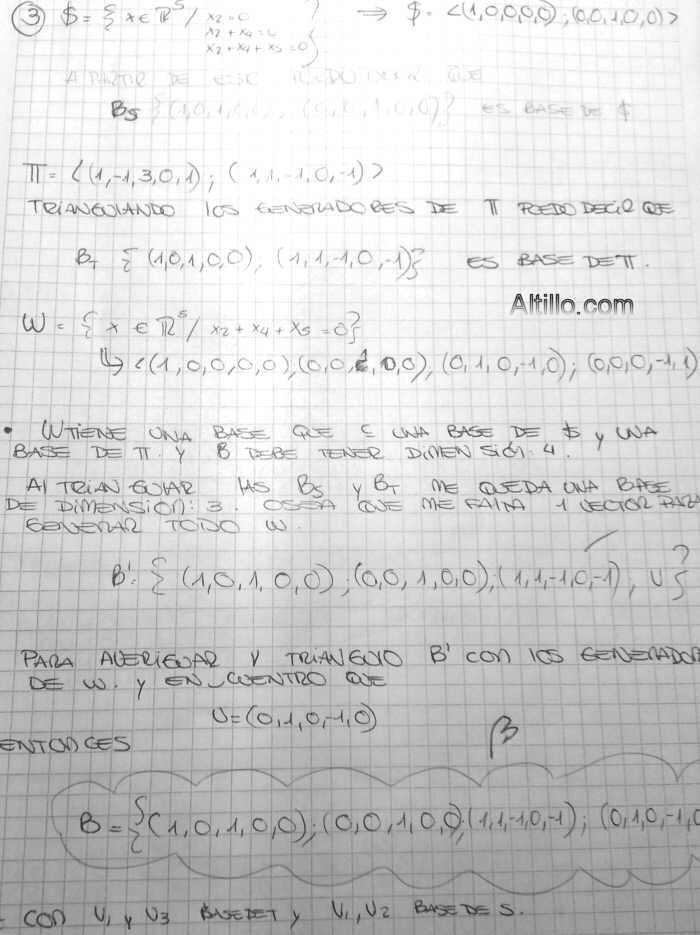 3 $ = { x ∈ ℝ⁵ / x₂ = 0 → $ = <(1,0,0,0,0); (0,0,1,0,0)>
x₂ + x₄ = 0
x₂ + x₄ + x₅ = 0 }
A PARTIR DE QUE
Bs {(1,0,1,0,0), (0,0,1,0,0)} ES BASE DE $
Π = <(1,-1,3,0,1); (1,1,-1,0,-1)>
TRIANGULANDO LOS GENERADORES DE Π PUEDO DECIR QUE
B_T {(1,0,1,0,0), (1,1,-1,0,-1)} ES BASE DE Π.
Altillo.com
W = { x ∈ ℝ⁵ / x₂ + x₄ + x₅ = 0}
↳ <(1,0,0,0,0), (0,0,1,0,0), (0,1,0,-1,0); (0,0,0,-1,1)
• W TIENE UNA BASE QUE ⊂ UNA BASE DE $ y UNA
BASE DE Π. Y B DEBE TENER DIMENSIÓN: 4.
Al TRIANGULAR LAS Bs y B_T ME QUEDA UNA BASE
DE DIMENSION: 3. OSEA QUE ME FALTA 1 VECTOR PARA
GENERAR TODO W.
B' = { (1,0,1,0,0); (0,0,1,0,0); (1,1,-1,0,-1), U }
PARA AVERIGUAR V TRIANGULO B' CON LOS GENERADOR
DE W. Y EN CUENTRO QUE
U = (0,1,0,-1,0)
ENTONCES
β
B = { (1,0,1,0,0); (0,0,1,0,0); (1,1,-1,0,-1); (0,1,0,-1,0
- CON V₁ y V₃ BASE DE T y V₁, V₂ BASE DE S.